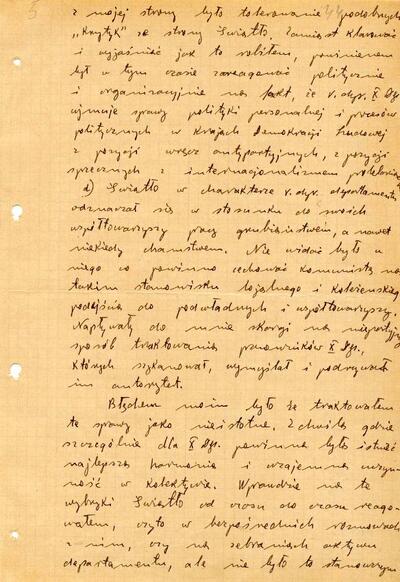 5
z mojej strony było tolerowanie podobnych
"krytyk" ze strony Światło. Zamiast klarować
i wyjaśniać jak to robiłem, powinienem
był w tym czasie zareagować politycznie
i organizacyjnie na fakt, że v. dyr. X Dep.
ujmuje sprawy polityki personalnej i procesów
politycznych w krajach Demokracji Ludowej
z pozycji wręcz antypartyjnych, z pozycji
sprzecznych z internacjonalizmem
d) Światło w charakterze v. dyr. departamentu
odznaczał się w stosunku do swoich
współtowarzyszy pracy grubiaństwem, a nawet
niekiedy chamstwem. Nie widać było u
niego co powinno cechować komunistę na
takim stanowisku lojalnego i koleżeńskiego
podejścia do podwładnych i współtowarzyszy.
Napływały do mnie skargi na niepartyjny
sposób traktowania pracowników X Dep.,
których szykanował, wymyślał i podrywał
im autorytet.
Błędem moim było że traktowałem
te sprawy jako nieistotne. Z chwilą gdzie
szczególnie dla X Dep. powinna była istnieć
najlepsza harmonia i wzajemna
w kolektywie. Wprawdzie na te
wybryki Światło od czasu do czasu reago-
wałem, czyto w bezpośrednich rozmowach
z nim, czy na zebraniach aktywu
departamentu, ale nie było to stanowczym